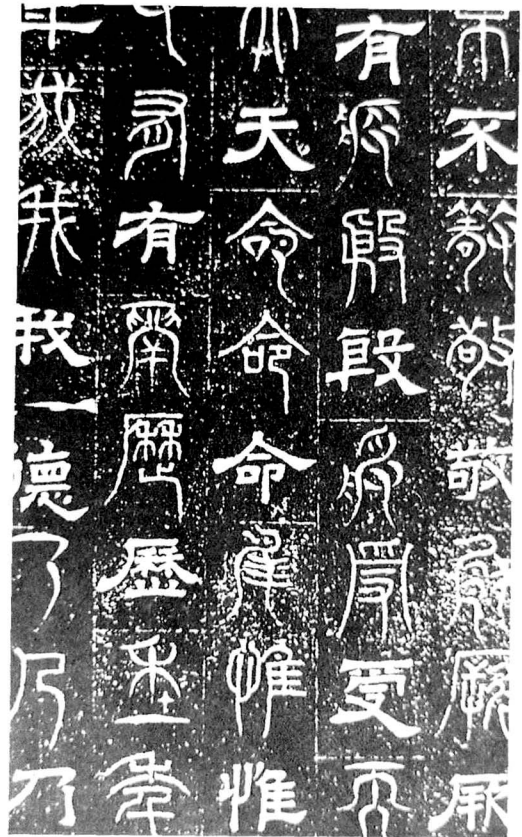 不不敬敬敬厥厥厥
有殷殷殷受受受天
天天命命命惟惟惟
有有有歷歷歷年年
年我我我一德乃乃乃